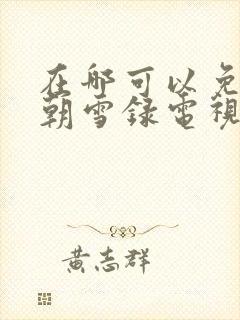 在哪可以免
朝雪録電視
黃志群